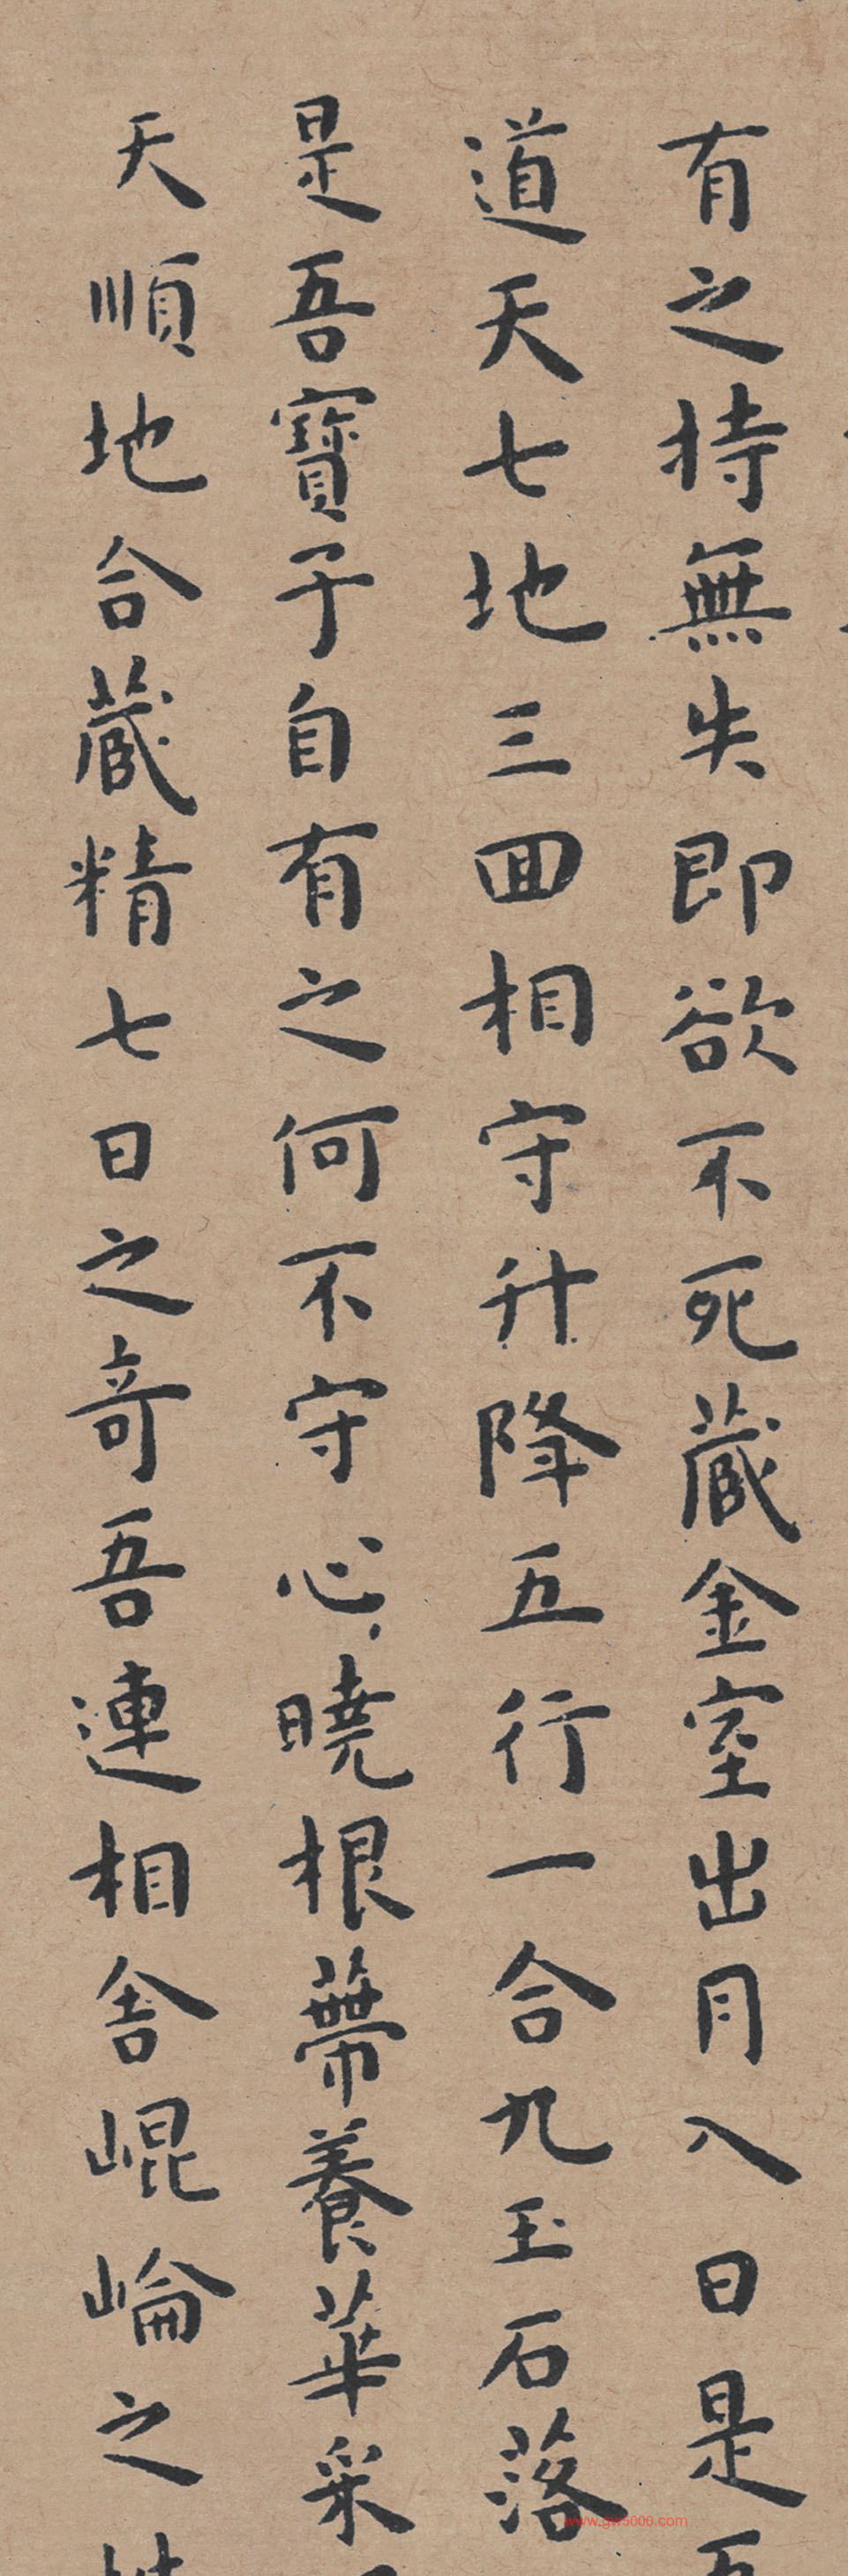 有之持無失即欲不死藏金室出月入日是
道天七地三回相守升降五行一合九玉石落
是吾寶子自有之何不守心曉根蔕養華采
天順地合藏精七日之奇吾連相舍崐崘之
www.gw5000.com